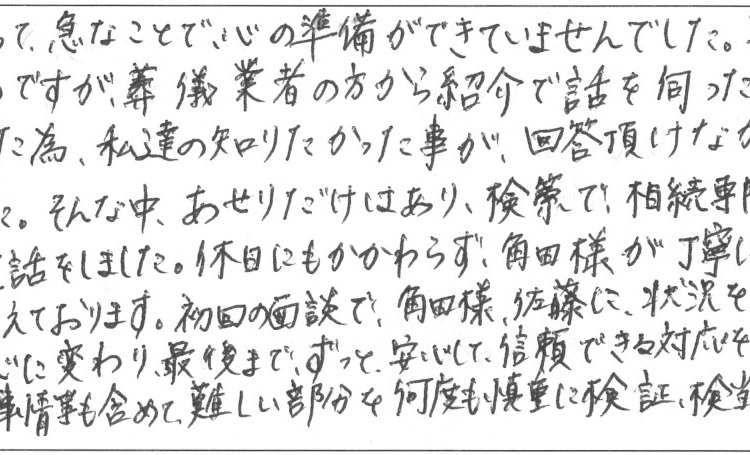 って、急なことで、心の準備ができていませんでした。
ですが、葬儀業者の方から紹介で話を伺った
た為、私達の知りたかった事が、回答頂けなか
た。そんな中、あせりだけはあり、検策で、相続専門
話をしました。休日にもかかわらず、角田様が丁寧に
えております。初回の面談で、角田様、佐藤に、状況を
心に変わり、最後まで、ずっと、安心して、信頼できる対応を
事情等も含めて、難しい部分を何度も慎重に検証、検当